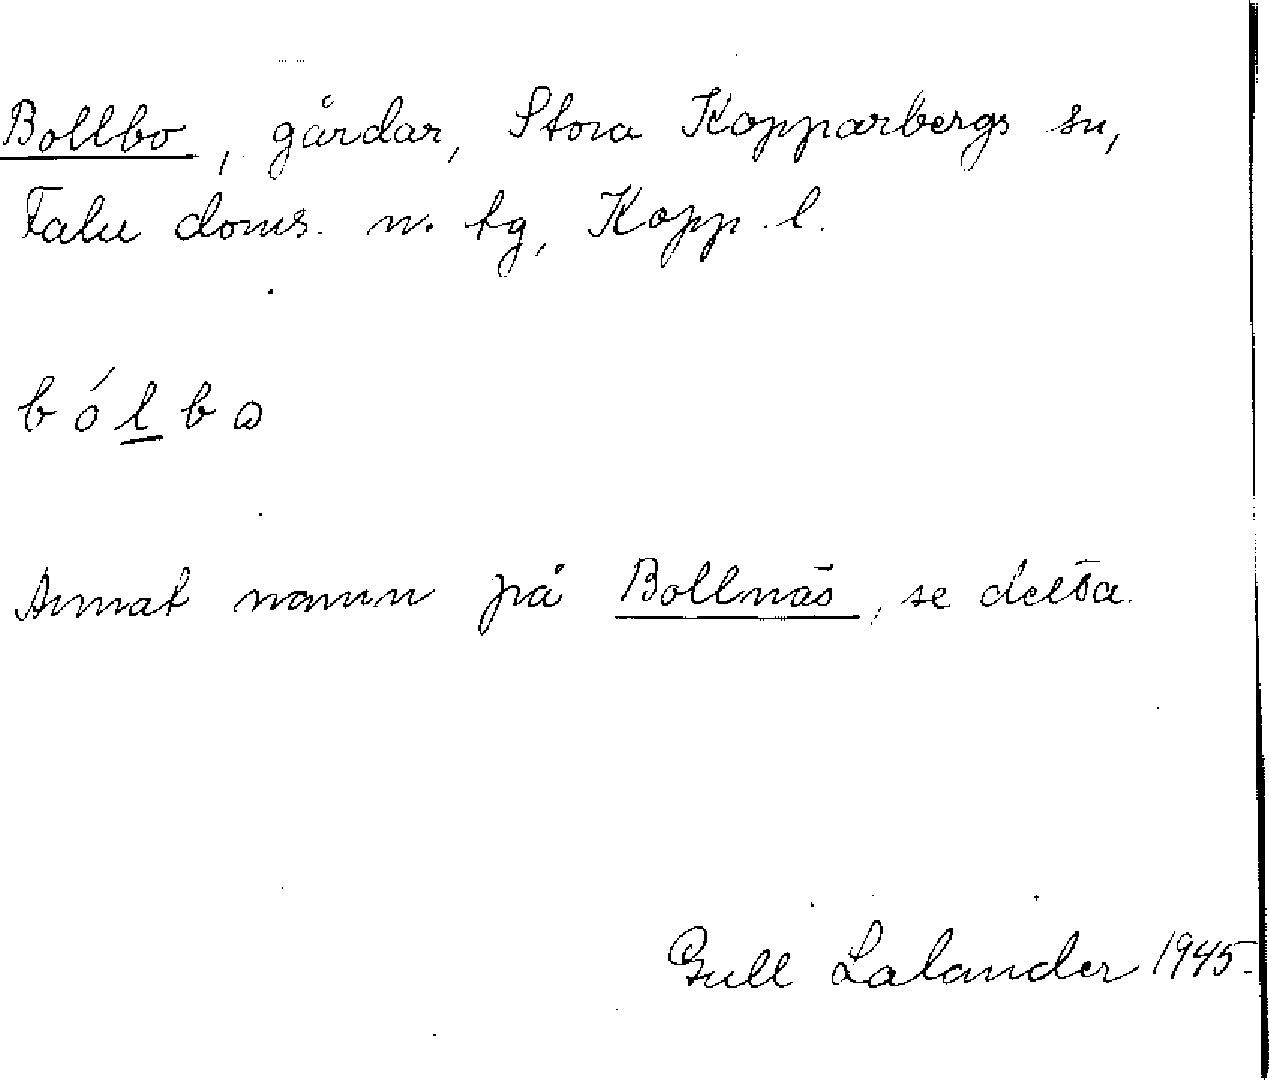 Bollbo, gårdar, Stora Kopparbergs sn,
Falu doms. n. tg, Kopp. l.
bólbo
Annat namn på Bollnäs, se detta.
Gull Lalander 1945.